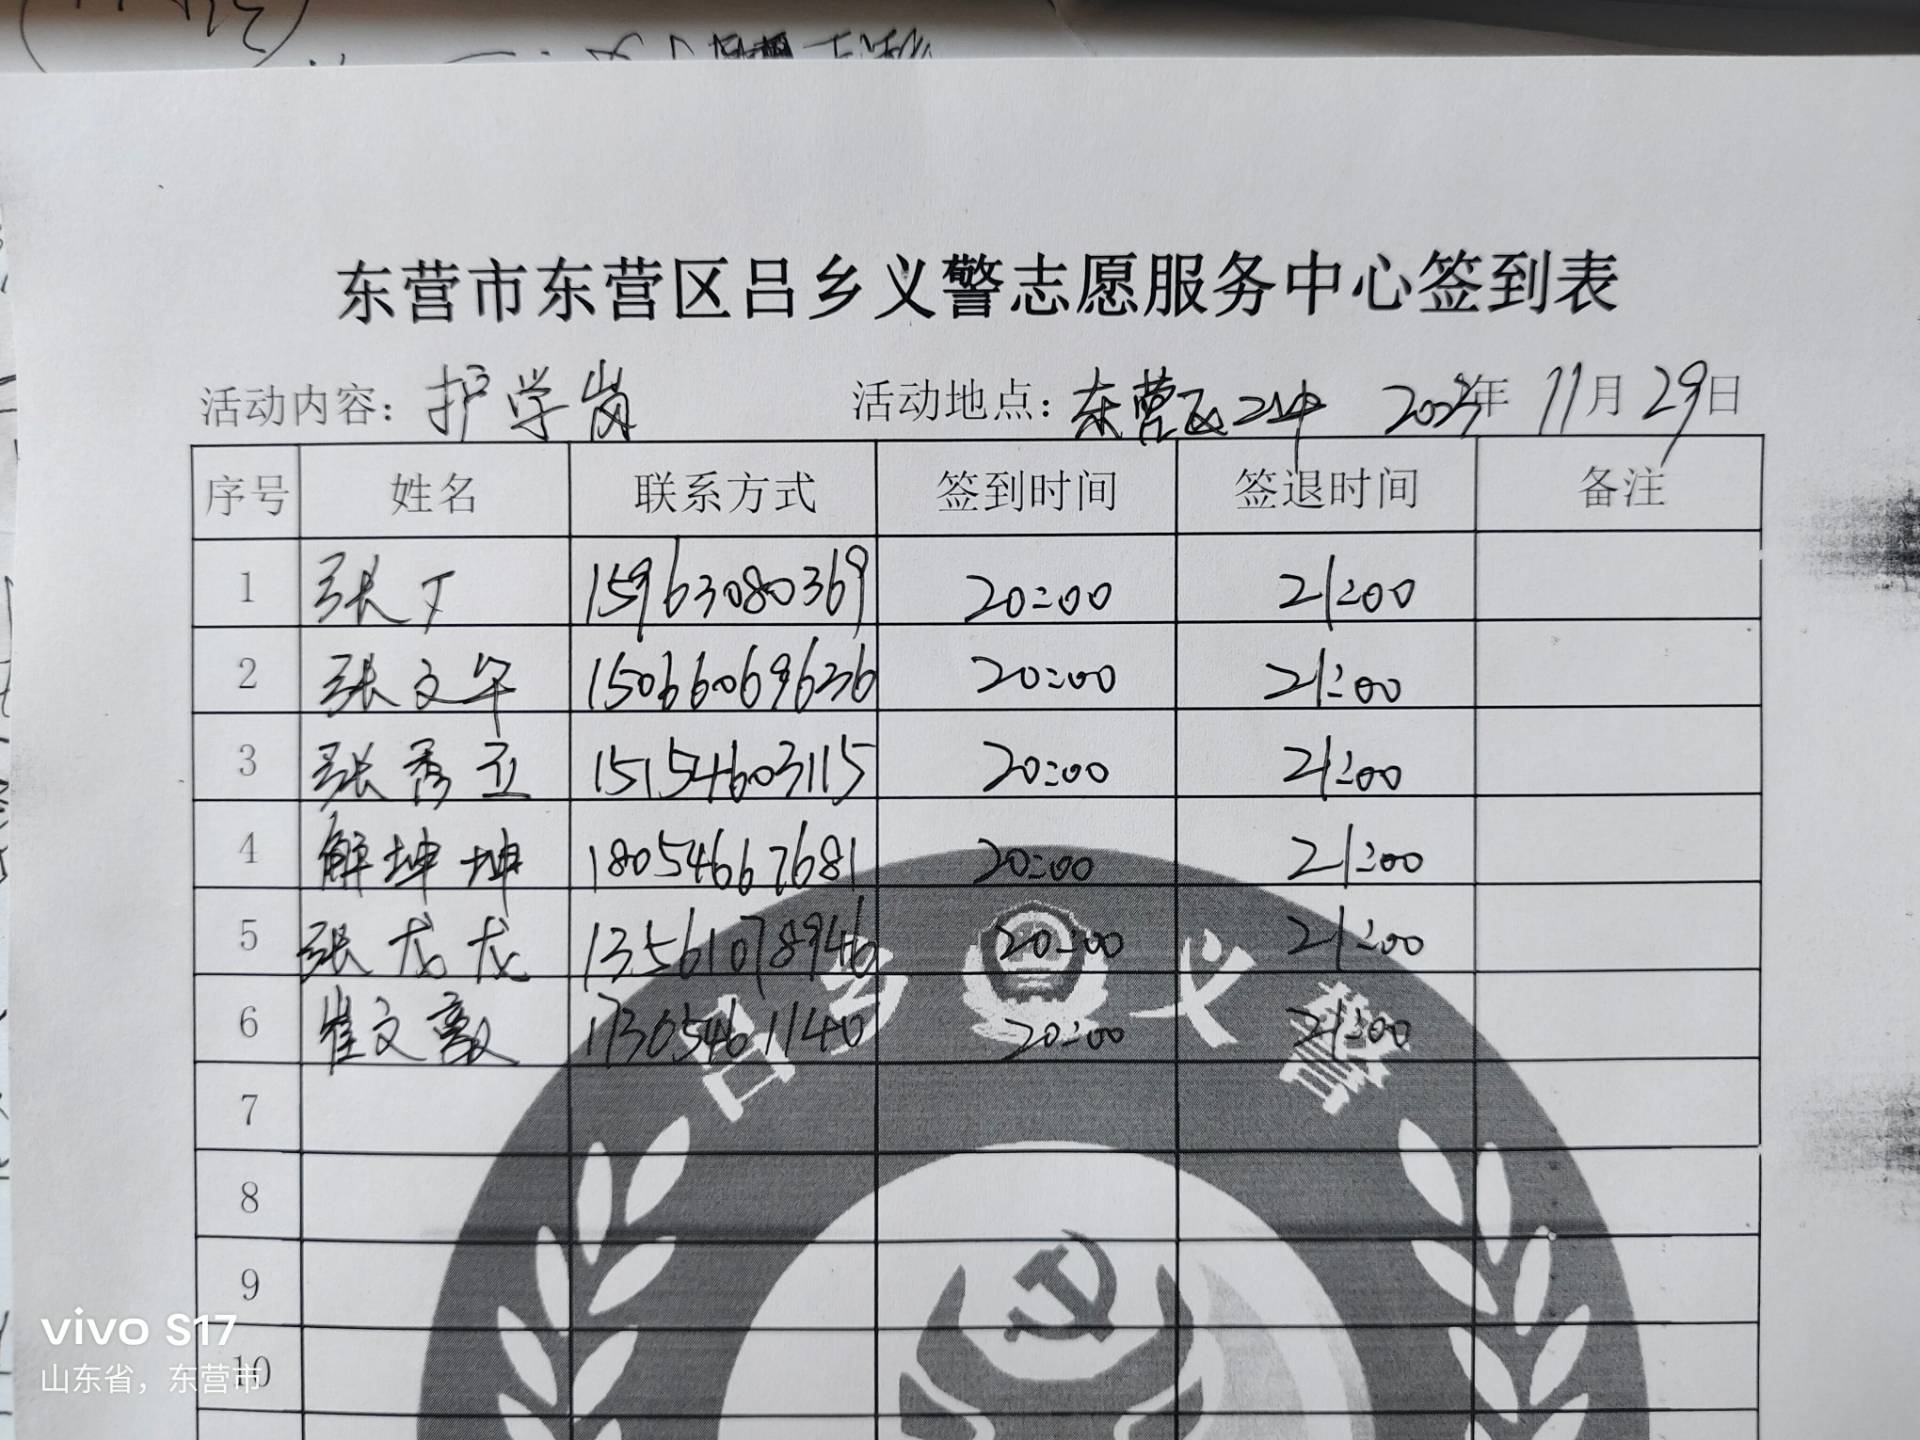 东营市东营区吕乡义警志愿服务中心签到表
活动内容：护学岗 活动地点：东营区二中 2023年 11月 29日
序号 姓名 联系方式 签到时间 签退时间 备注
1 张丁 15963080369 20:00 21:00
2 张文午 15066069636 20:00 21:00
3 张秀卫 15154603115 20:00 21:00
4 解坤坤 18054667681 20:00 21:00
5 张龙龙 13561078946 20:00 21:00
6 崔文 17305461140 20:00 21:00
7
8
9
10
吕乡义警
vivo S17
山东省，东营市